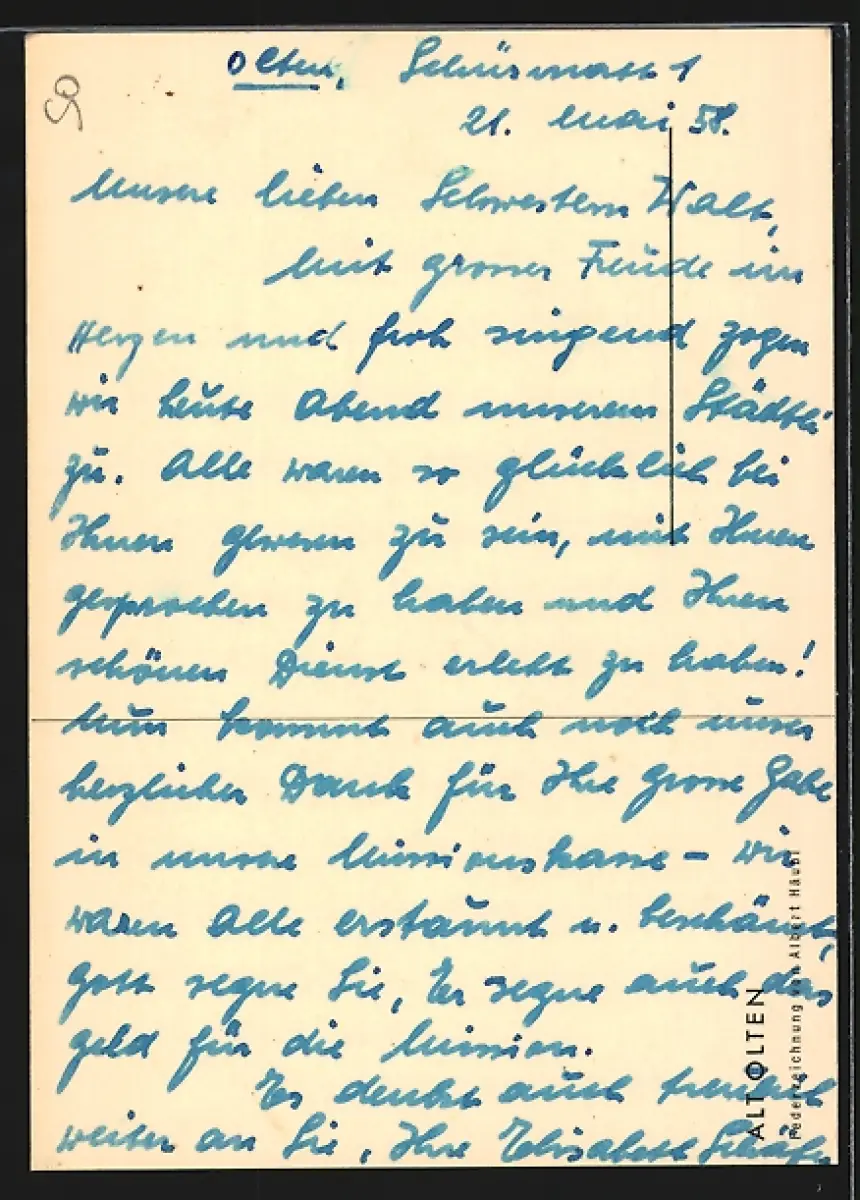 Olten, Schürmatt 1
21. Mai 58.
Unsere lieben Schwestern Walt,
Mit grosser Freude im
Herzen und froh singend zogen
wir heute Abend unserem Städtli
zu. Alle waren so glücklich bei
Ihnen gewesen zu sein, mit Ihnen
gesprochen zu haben und Ihren
schönen Dienst erlebt zu haben!
Nun kommt auch noch unser
herzlicher Dank für Ihre grosse Gabe
in unsere Missionskasse – wir
waren alle erstaunt u. beschämt,
Gott segne Sie, Er segne auch das
Geld für die Mission.
Es denkt auch treulich
weiter an Sie, Ihre Elisabeth
ALT OLTEN
Federzeichnung von Albert Häubi